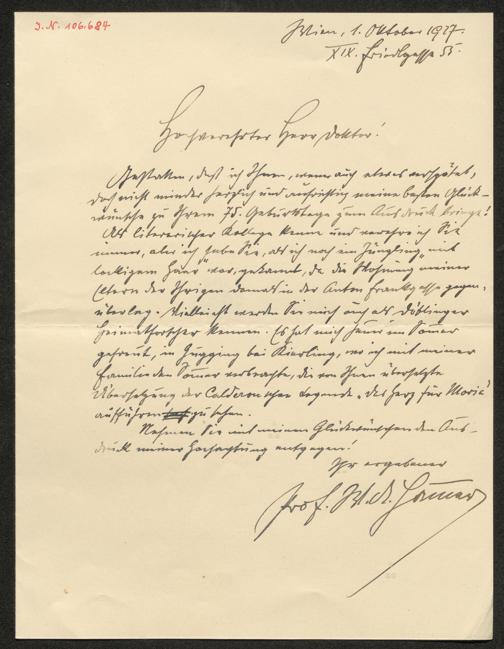 J.N. 106.684
Wien, 1. Oktober 1927.
XIX. Friedlgasse 55.
Hochverehrter Herr Doktor!
Gestatten, daß ich Ihnen, wenn auch etwas verspätet,
doch nicht minder herzlich und aufrichtig meine besten Glück-
wünsche zu Ihrem 75. Geburtstage zum Ausdruck bringe!
Als literarischer Kollege kenne und verehre ich Sie
immer, aber ich habe Sie, als ich noch ein Jüngling „mit
lockigem Haar" war, gekannt, da die Wohnung meiner
Eltern der Ihrigen damals in der Anton Frankgasse gegen-
überlag. Vielleicht werden Sie mich auch als Döblinger
Heimatforscher kennen. Es hat mich heuer im Sommer
gefreut, in Gugging bei Kierling, wo ich mit meiner
Familie den Sommer verbrachte, die von Ihnen übersetzte
Übersetzung der Calderon'schen Legende „Das Herz für Maria"
aufführen zu sehen.
Nehmen Sie mit meinen Glückwünschen den Aus-
druck meiner Hochachtung entgegen!
Ihr ergebener
Prof. W. A. Hammer